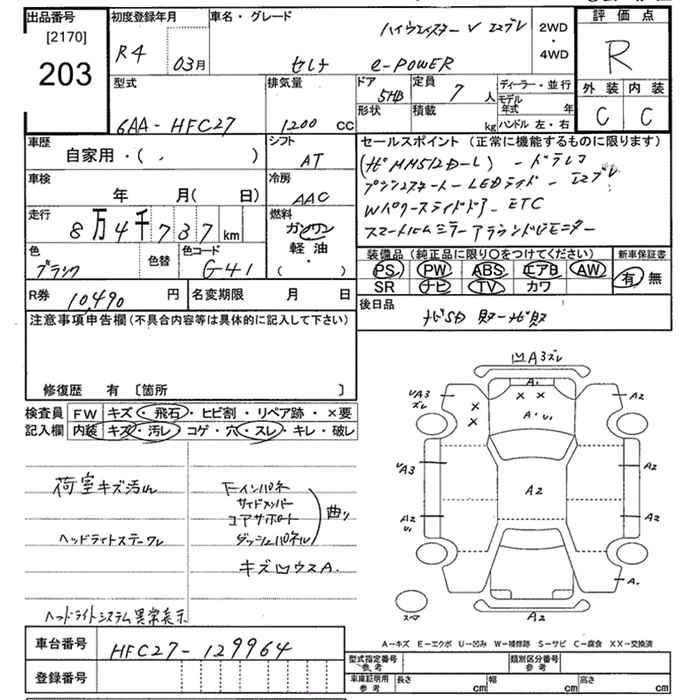 出品番号 初度登録年月 車名・グレード 評価点
[2170] ハイウェイスター V エアブレ 2WD
203 R4 03月 セレナ e-POWER ・ 4WD R
型式 排気量 ドア 定員 ディーラー・並行 外装 内装
6AA-HFC27 1200 CC 5HB 7 人 モデル年式 年 C C
形状 積載 kg ハンドル 左・右
車歴 シフト セールスポイント (正常に機能するものに限ります)
自家用・( ) AT (ナビMM512D-L) - ドラレコ
車検 冷房 プッシュスタート - LEDライト - エアブレ
年 月( 日) AAC Wパワースライドドア - ETC
走行 燃料 スマートルームミラー アラウンドビューモニター
8万4千737km ガソリン
軽油
・
( )
色 色替 色コード 装備品 (純正品に限り○をつけてください) 新車保証書
ブラック G41 PS PW ABS エアB AW 有 無
SR ナビ TV カワ
R券 10490 円 名変期限 月 日 後日品
注意事項申告欄 (不具合内容等は具体的に記入して下さい) ナビSD 取-ナビ取
修復歴 有 〔箇所 〕
検査員 FW キズ・飛石・ヒビ割・リペア跡・×要
記入欄 内装 キズ・汚レ・コゲ・穴・スレ・キレ・破レ
凹A3ズレ
A.
× ×
A・U.
UA3
ズレ
×
×
A2
UA3
A2
A2
A2
U1
A2
A.
スペア
A2
荷室キズ汚れ
F-インパネ
サイドメンバー
コアサポート 曲り
ヘッドライトステーワレ ダッシュパネル
キズ凹ウスA.
ヘッドライトシステム異常表示
A-キズ E-エクボ U-凹み W-補修跡 S-サビ C-腐食 XX-交換済
車台番号 HFC27-129964
型式指定番号 参考 類別区分番号 参考
登録番号 車庫証明用 参考 長さ cm 幅 cm 高さ cm